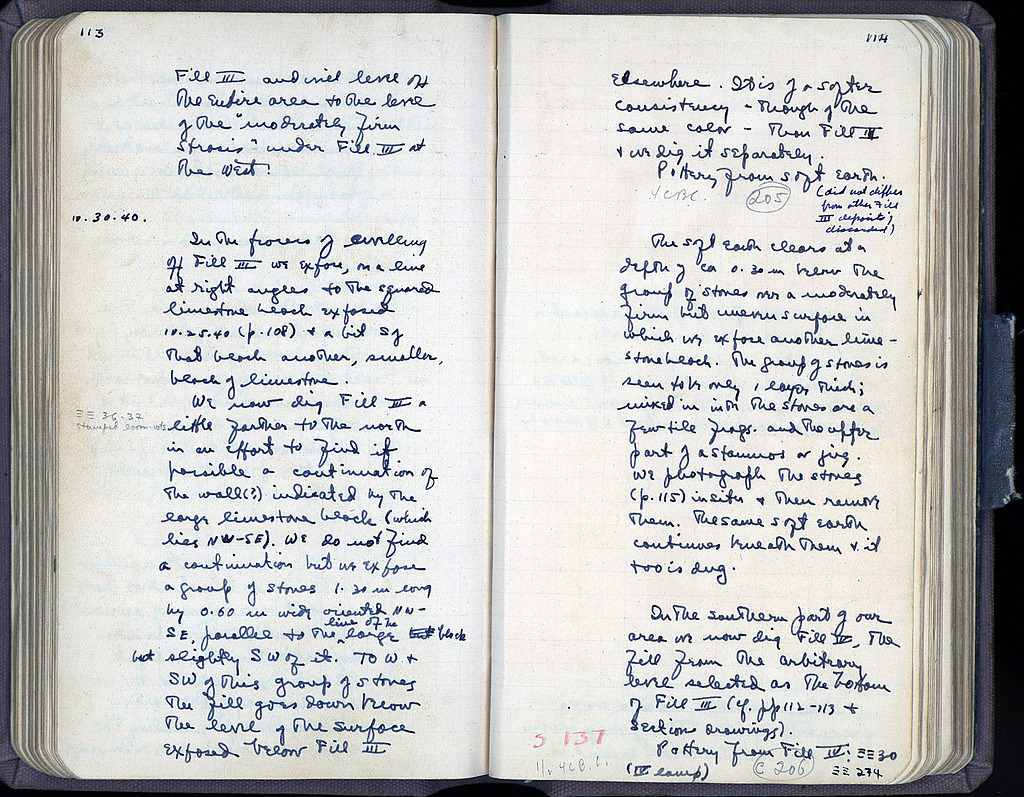 113
Fill III and will level off
the entire area to the level
of the "moderately firm
strosis" under Fill III at
the West.
10.30.40.
In the process of levelling
off Fill III we expose, on a line
at right angles to the squared
limestone block exposed
10.25.40 (p. 108) & a bit S of
that block another, smaller,
block of limestone.
We now dig Fill III a
ΞΞ 36-37
stamped loom-wts
little farther to the north
in an effort to find if
possible a continuation of
the wall(?) indicated by the
large limestone block (which
lies NW-SE). We do not find
a continuation but we expose
a group of stones 1.30 m long
by 0.60 m wide oriented NW-
SE, parallel to the line of the large block
but slightly SW of it. To W &
SW of this group of stones
the fill goes down below
the level of the surface
exposed below Fill III
114
elsewhere. It is of a softer
consistency - though of the
same color - than Fill III
& we dig it separately.
Pottery from soft earth.
4CBC. 205
(did not differ
from other Fill
III deposits;
discarded)
The soft earth clears at a
depth of ca 0.30 m below the
group of stones over a moderately
firm but uneven surface in
which we expose another lime-
stone block. The group of stones is
seen to be only 1 layer thick;
mixed in with the stones are a
few tile frags. and the upper
part of a stamnos or jug.
We photograph the stones
(p. 115) in situ & then remove
them. The same soft earth
continues beneath them & it
too is dug.
In the southern part of our
area we now dig Fill IV, the
fill from the arbitrary
level selected as the bottom
of Fill III (cf. pp 112-113 &
section drawings).
Pottery from Fill IV: ΞΞ 30
(IV lamp) C 206 ΞΞ 274
S 137